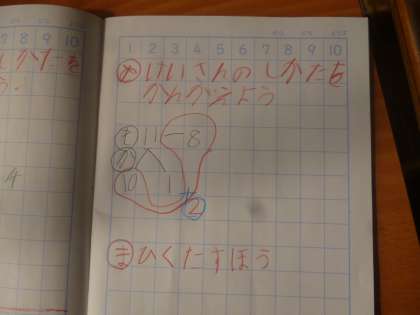 8 9 10
しかたを
う。
1 2 3 4 5 6 7 8 9 10
め けいさんのしかたを
かんがえよう
11-8
10 1
2
ま ひくたすほう